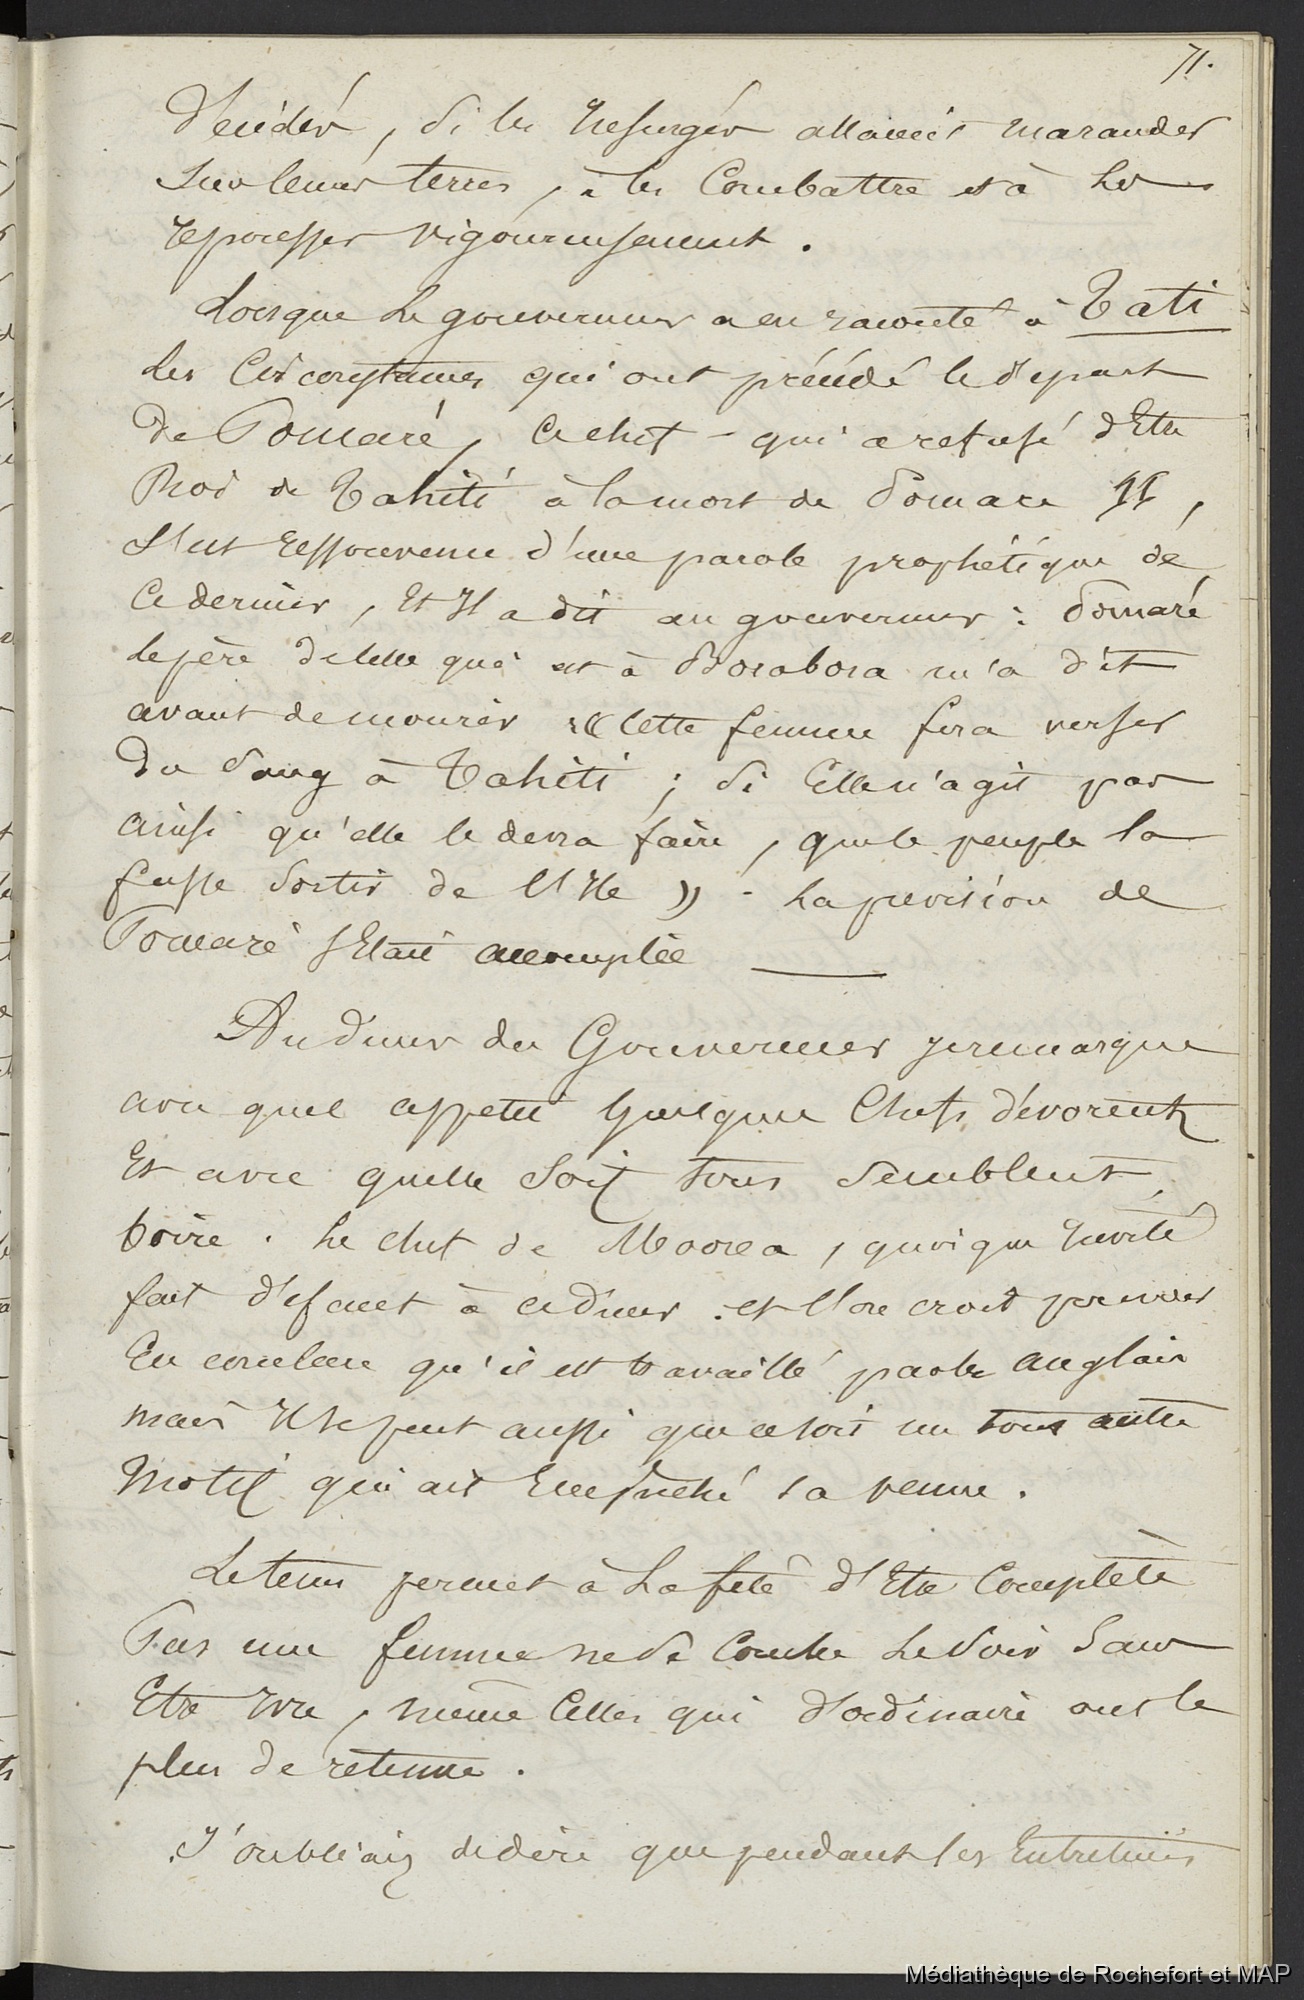 71.
décidés, si les Insurgés allaient marauder
sur leurs terres, à les Combattre et à les
represser vigoureusement.
Lorsque le gouverneur a eu raconté à Tati
les Circonstances qui ont précédé le départ
de Pomaré, ce chef - qui a refusé d'Etre
Roi de Tahiti à la mort de Pomare II,
s'est ressouvenu d'une parole prophétique de
ce dernier, et Il a dit au gouverneur : Pomaré
le père de celle qui est à Borabora m'a dit
avant de mourir « Cette femme fera verser
du Sang à Tahiti ; si Elle n'agit pas
ainsi qu'elle le devra faire, que le peuple la
fasse Sortir de l'Ile » - La prévision de
Pomaré s'Etait accomplie —
Au diner du Gouverneur je remarque
avec quel appetit quelques Chefs dévorent
Et avec quelle Soif tous Semblent
boire. Le chef de Moorea, quoique Invité
fait défaut à ce diner. et l'on croit pouvoir
En conclure qu'il est travaillé par les anglais
mais Il se peut aussi que ce soit un tout autre
Motif qui ait Empêché sa venue.
Le tems permet à la fête d'Etre Complète
Pas une femme ne se Couche le Soir Sans
Etre Ivre, même Celles qui d'ordinaire ont le
plus de retenue.
J'oubliais de dire que pendant les Entretiens
Médiathèque de Rochefort et MAP